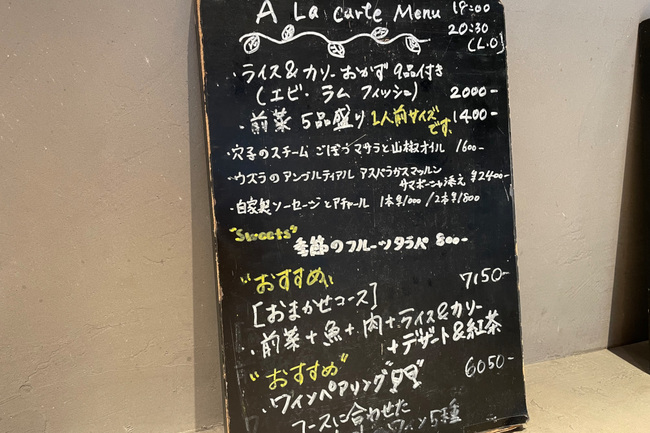 A La carte Menu 18:00
20:30
(L.O)
・ライス&カリー おかず 9品付き
(エビ・ラム フィッシュ) 2000-
・前菜 5品盛り 1人前サイズです。 1400-
・穴子のスチーム ごぼうマサラと山椒オイル 1600-
・ウズラのアンブルティアル アスパラガスマッルン
サマポーシャ添え ¥2400-
・自家製ソーセージとアチャール 1本¥1000 / 2本¥1800
"Sweets"
季節のフルーツタラパ 800-
"おすすめ"
[おまかせコース] 7150-
・前菜+魚+肉+ライス&カリー
+デザート&紅茶
"おすすめ"
・ワインペアリング 6050-
コースに合わせた
ワイン5種